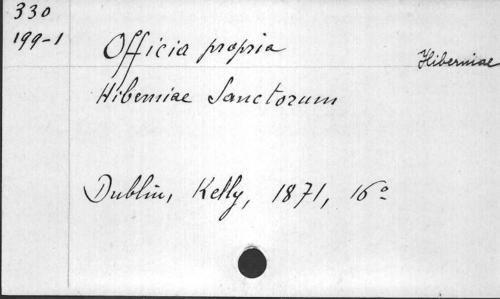 330
199-1
Officia propria
Hiberniae
Hiberniae Sanctorum
Dublin, Kelly, 1871, 16º